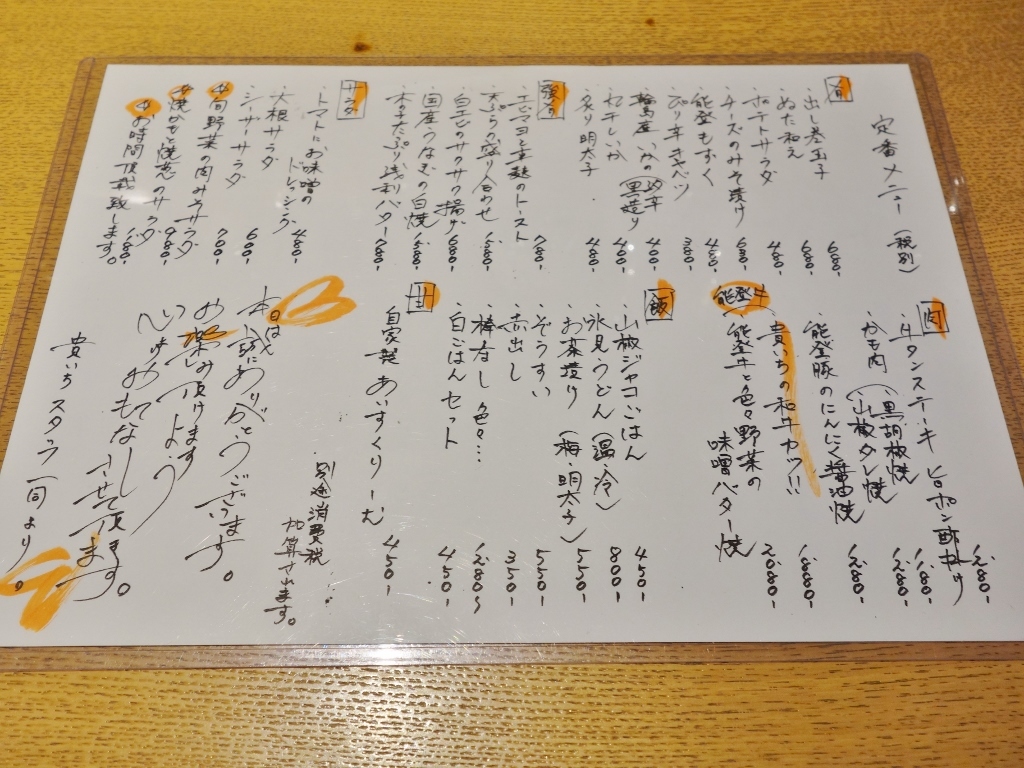 定番メニュー（税別）
出し巻玉子 680-
ぬた和え 680-
ポテトサラダ 480-
チーズのみそ漬け 630-
能登もずく 480-
ぴり辛キャベツ 380-
輪島産いかの 400-
丸干しいか 400-
炙り明太子 480-
エビマヨと車麩のトースト 780-
天ぷらの盛り合わせ
白エビのサクサク揚げ 680-
国産うなぎの白焼
木の子たっぷり浅利バター 780-
サラダ
・トマトにお味噌の
ドレッシング 480-
・大根サラダ 600-
・シーザーサラダ 700-
旬野菜の肉みそサラダ 980-
焼かもと焼葱のサラダ 1,180-
お時間頂戴致します。
肉
・牛タンステーキ 旨ポン酢掛け 1,280-
・かも肉（黒胡椒焼 1,180-
山椒タレ焼 1,180-
・能登豚のにんにく醤油焼 1,280-
・貴いちの和牛カツ!! 1,880-
能登牛
・能登牛と色々野菜の
味噌バター焼 2,080-
飯
・山椒ジャコごはん 450-
・氷見うどん（温・冷） 800-
・お茶漬け（梅・明太子） 550-
・ぞうすい 550-
・赤出し 350-
・棒寿し 色々… 1,280〜
・白ごはんセット 450-
甘
自家製 あいすくりーむ 450-
別途消費税
加算されます。
本日は
誠にありがとうございます。
お楽しみ頂けますよう
心よりおもてなし
させて頂きます。
貴いちスタッフ一同より。